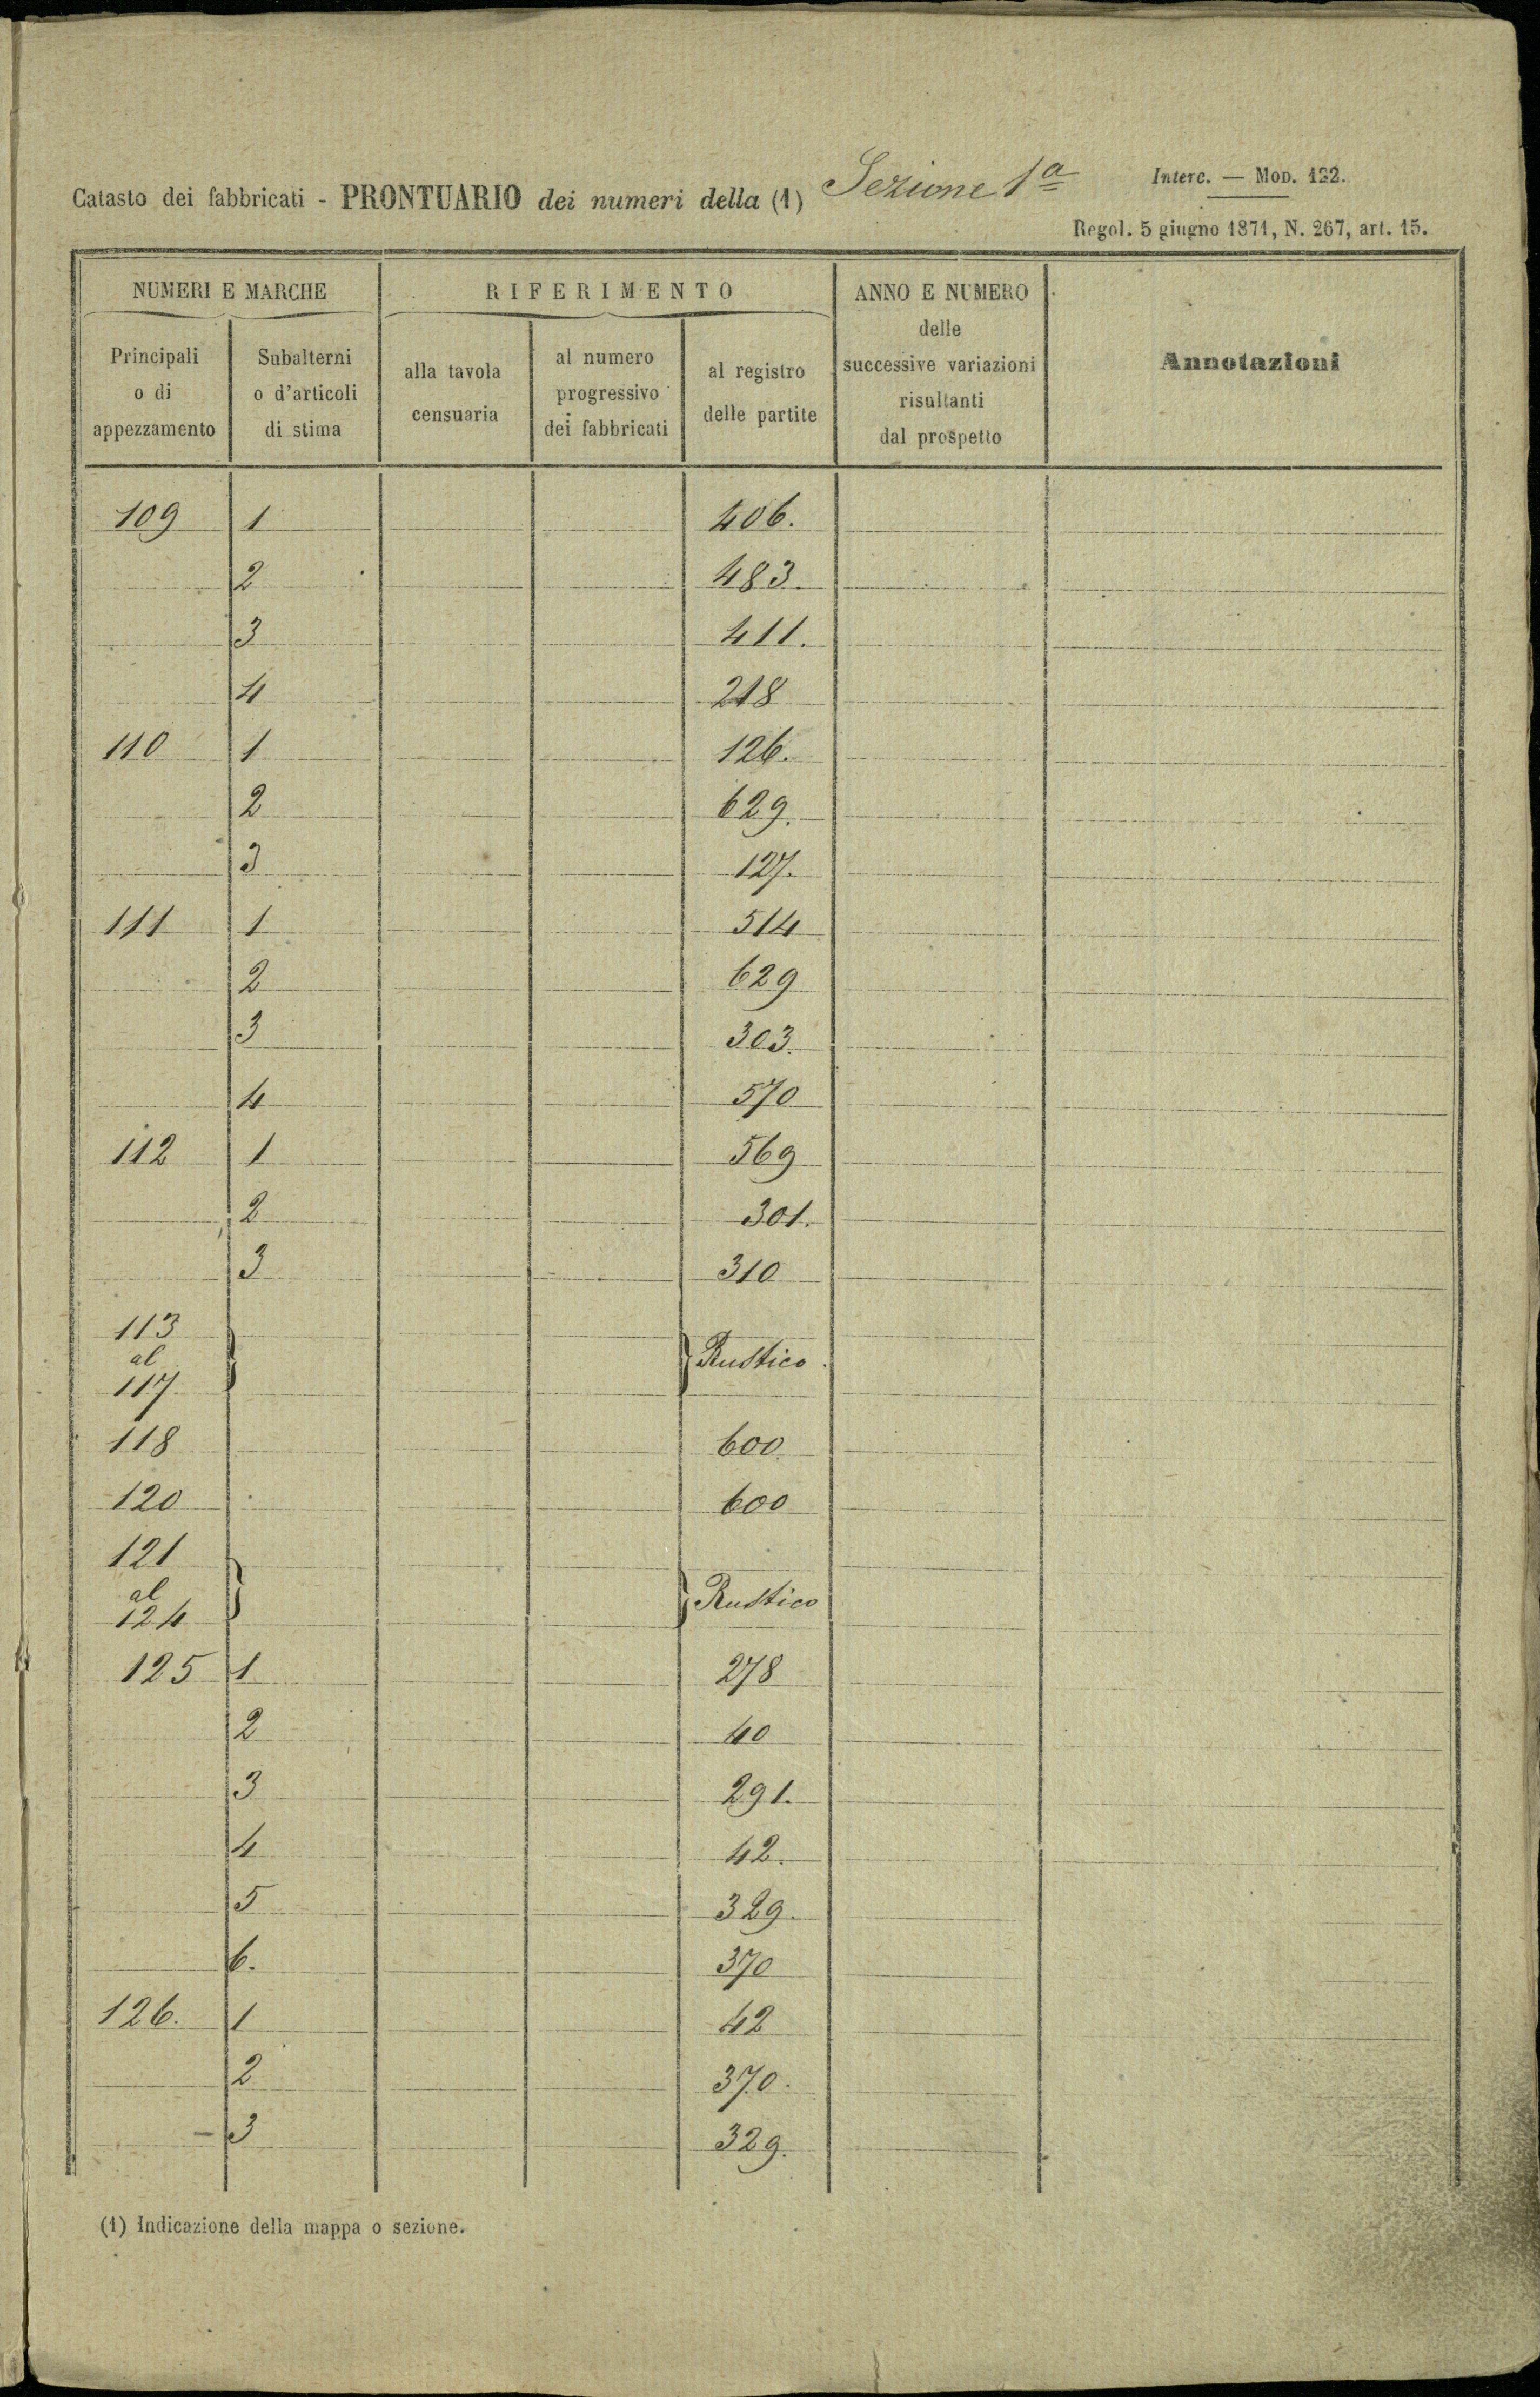 Catasto dei fabbricati - PRONTUARIO dei numeri della (1) Sezione 1ª
Interc. — MOD. 122.
Regol. 5 giugno 1871, N. 267, art. 15.
NUMERI E MARCHE RIFERIMENTO ANNO E NUMERO delle successive variazioni risultanti dal prospetto Annotazioni
Principali o di appezzamento Subalterni o d'articoli di stima alla tavola censuaria al numero progressivo dei fabbricati al registro delle partite
109 1 406.
2 483.
3 411.
4 218
110 1 126.
2 629.
3 127.
111 1 514
2 629
3 303.
4 570
112 1 569
2 301.
3 310
113
al } } Rustico.
117
118 600
120 600
121
al } } Rustico
124
125 1 278
2 40
3 291.
4 42.
5 329.
6. 370
126. 1 42
2 370.
3 329.
(1) Indicazione della mappa o sezione.